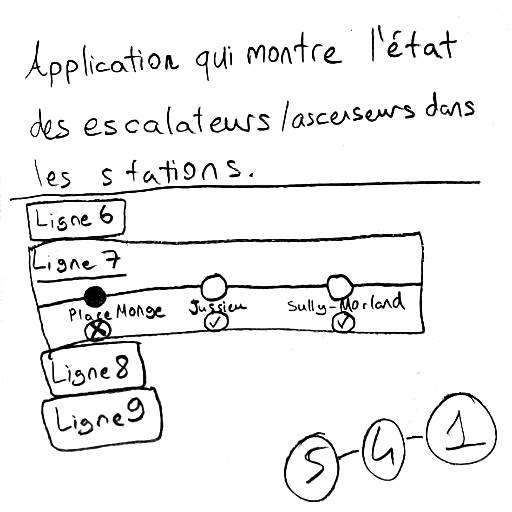 Application qui montre l'état
des escalateurs/ascenseurs dans
les stations.
Ligne 6
Ligne 7
Place Monge Jussieu Sully-Morland
Ligne 8
Ligne 9
5-4-1